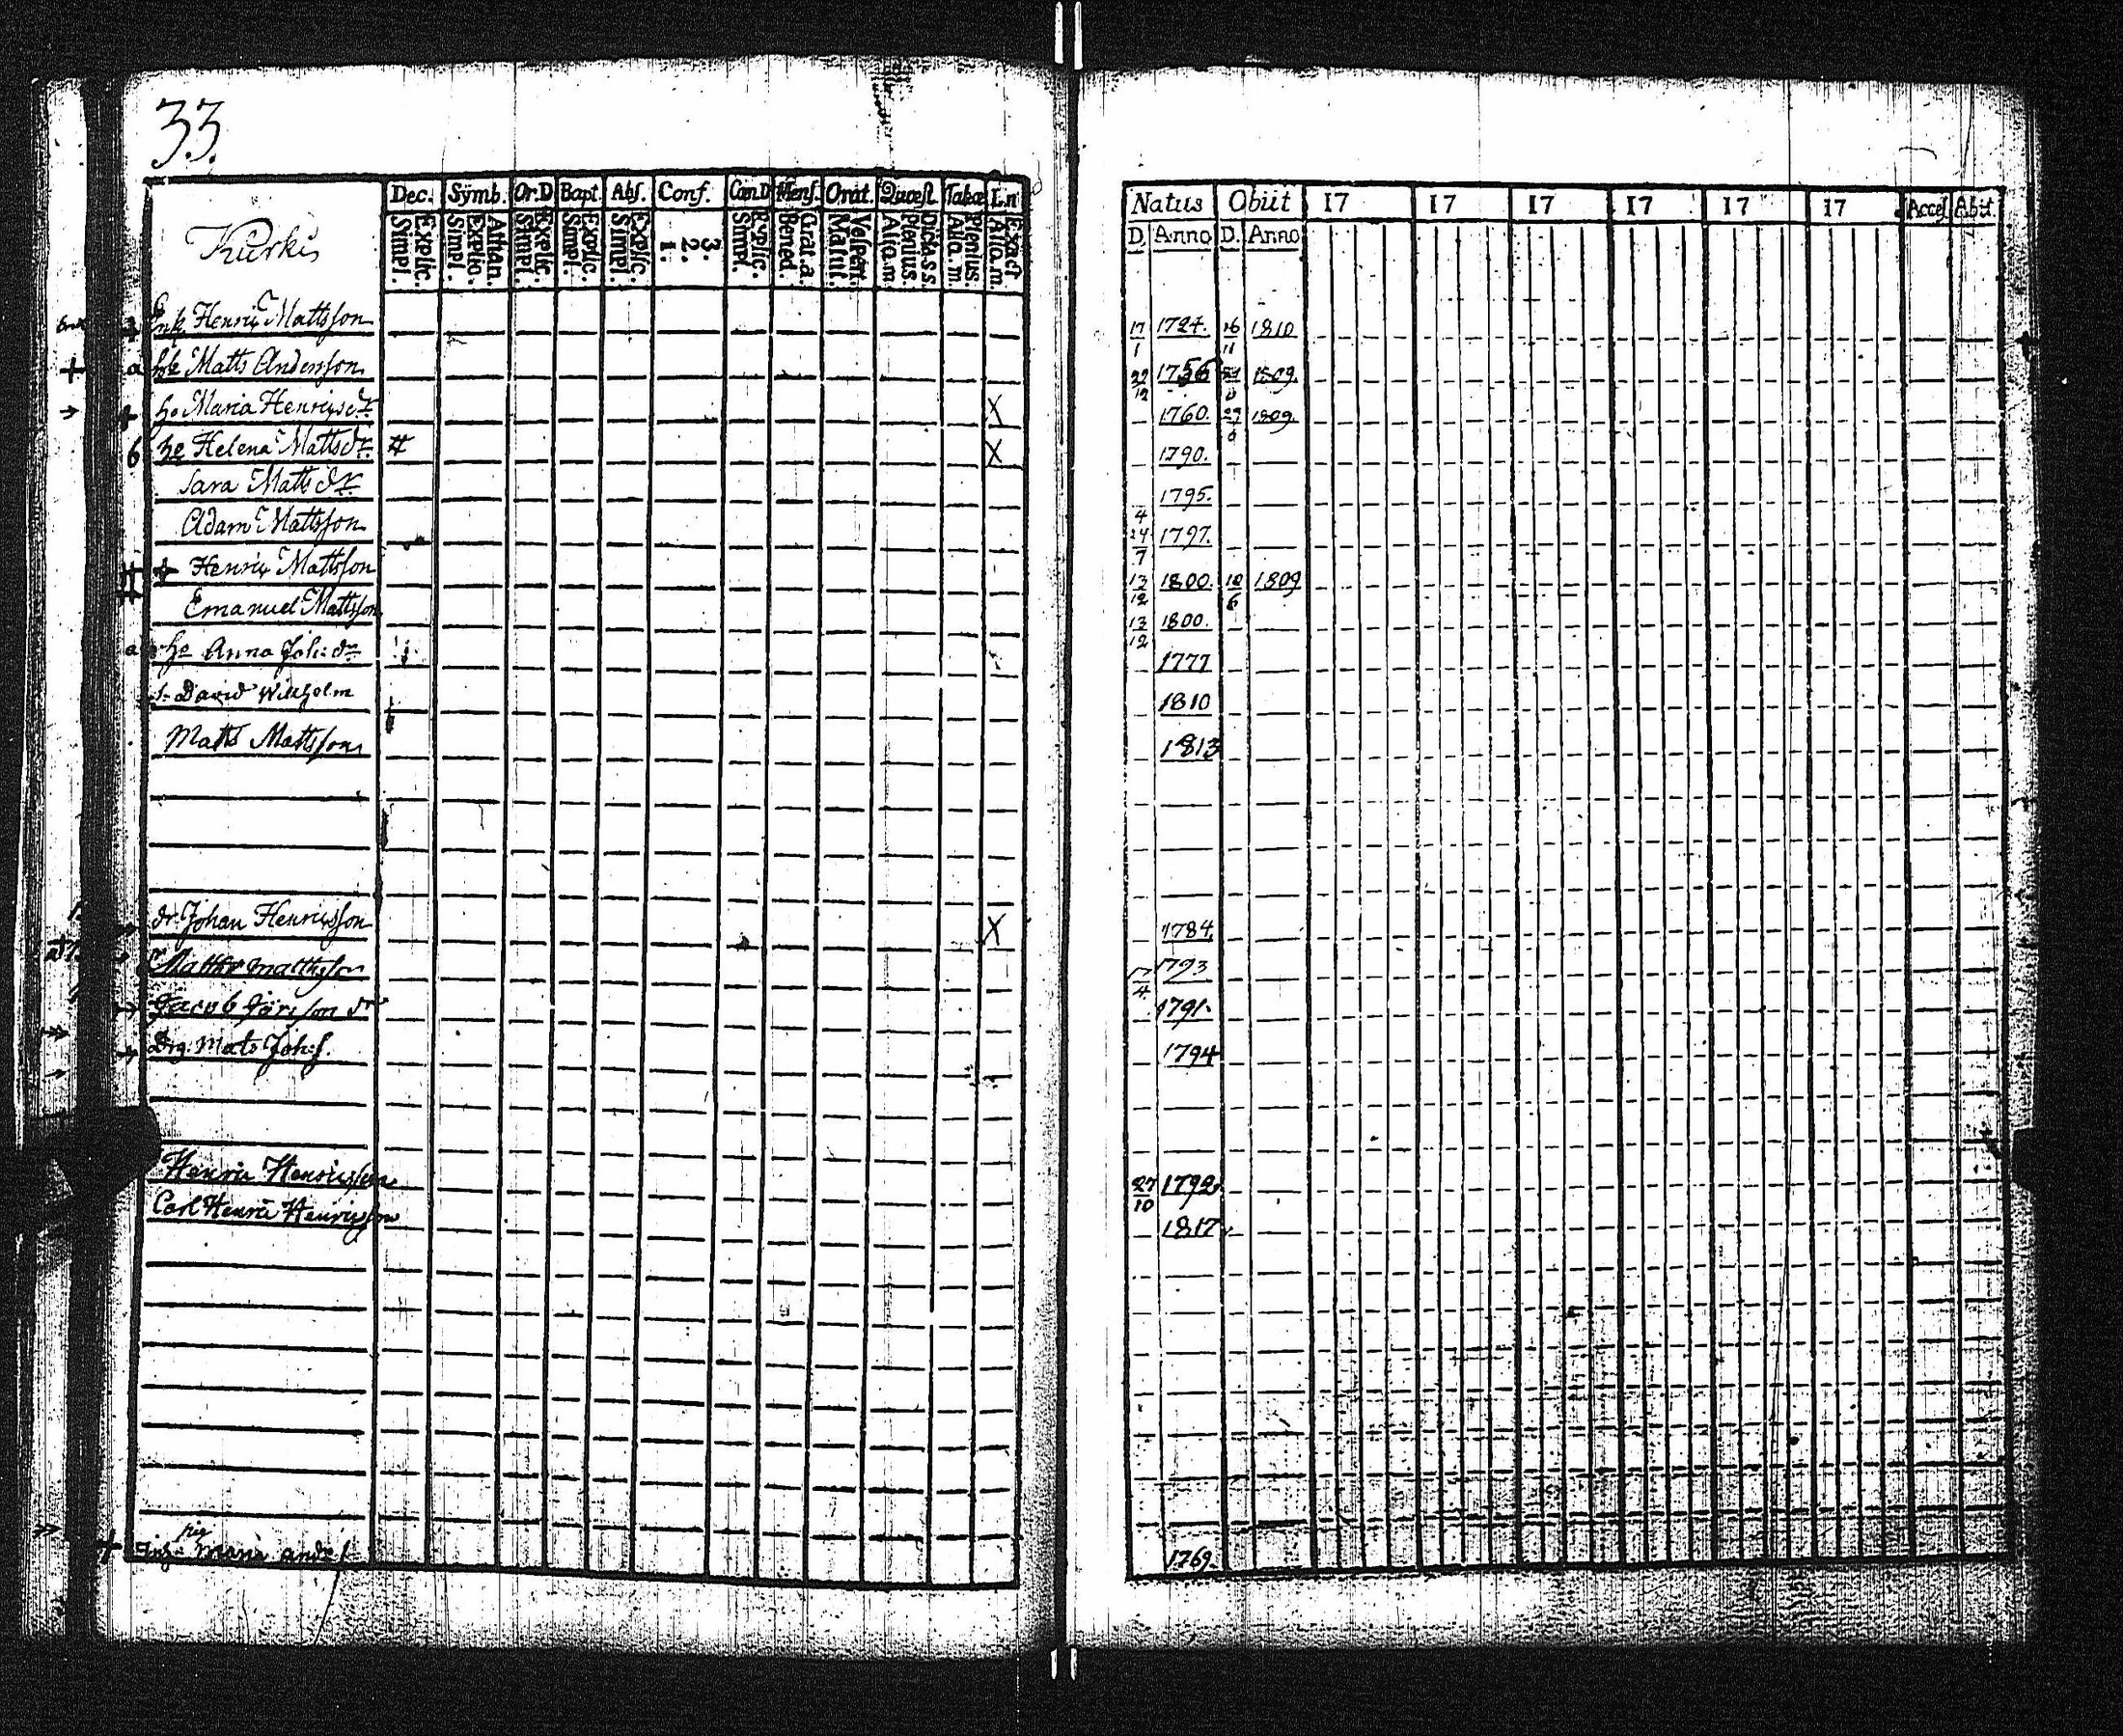 33.
Dec. Symb. Or.D Bapt. Abs. Conf. Can.D Mens. Orat. Quæst. Tabæ In
Kurki
Explic. Simpl. Athan. Explic. Simpl. Explic. Simpl. Explic. Simpl. Explic. Simpl. 3. 2. 1. Explic. Simpl. Grat. a. Bened. Vespert. Matut. Dicta S.S. Plenius. Aliq. m. Plenius. Aliq. m. Exact. Aliq. m.
Natus Obiit 17 17 17 17 17 17 Acces. Abit.
D. Anno D. Anno
Henric Mattsson 17/1 1724. 16/11 1810
a Matts Andersson 1756 1809.
ho Maria Henricsdr X 1760. 1809.
6 Helena Matts dr. X 1790.
Sara Matts dr 1795.
Adam Mattsson 24/7 1797.
+ Henric Mattsson 13/12 1800. 10/6 1809
Emanuel Mattsson 13/12 1800.
a ho Anna Joh: dr 1777
s. David Wilhelm 1810
Matts Mattsson 1813
dr. Johan Henricsson X 1784.
Matts Matthsson 17/4 1793
Jacob Jörisson dr 1791.
Drg. Mats Joh:s. 1794
Henric Henricsson 27/10 1792.
Carl Henric Henricsson 1817.
pig
+ Maria 1769.